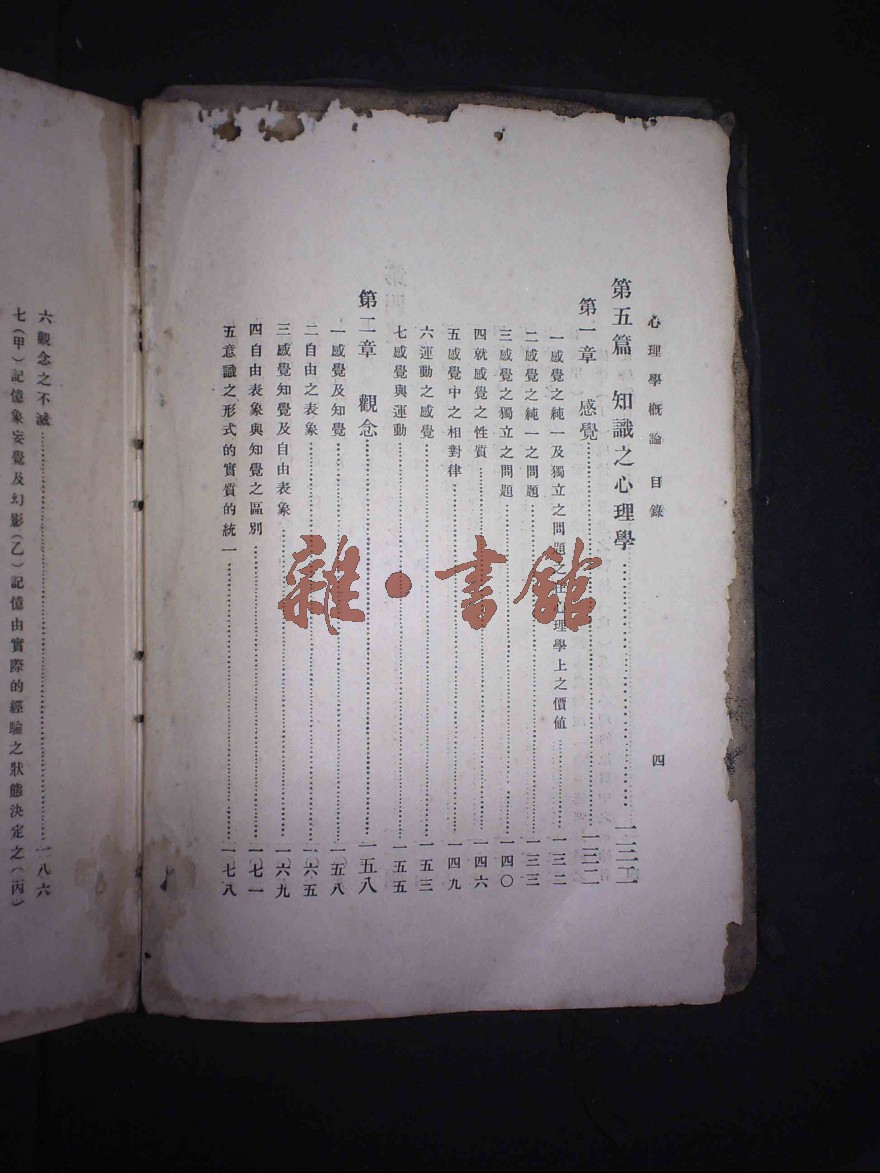 心理學概論 目錄 四
第五篇 知識之心理學……一三二
第一章 感覺……一三二
一感覺之純一及獨立之問題之在心理學上之價値……一三二
二感覺之純一之問題……一三三
三感覺之獨立之問題……一四〇
四就感覺之性質……一四六
五感覺中之相對律……一四九
六運動之感覺……一五三
七感覺與運動……一五五
第二章 觀念……一五八
一感覺及知覺……一五八
二自由之表象……一六五
三感覺知覺及自由表象……一六九
四自由表象與知覺之區別……一七一
五意識之形式的實質的統一……一七八
六觀念之不滅……一八六
七(甲)記憶象妄覺及幻影(乙)記憶由實際的經驗之狀態決定之(丙)
雜·書館